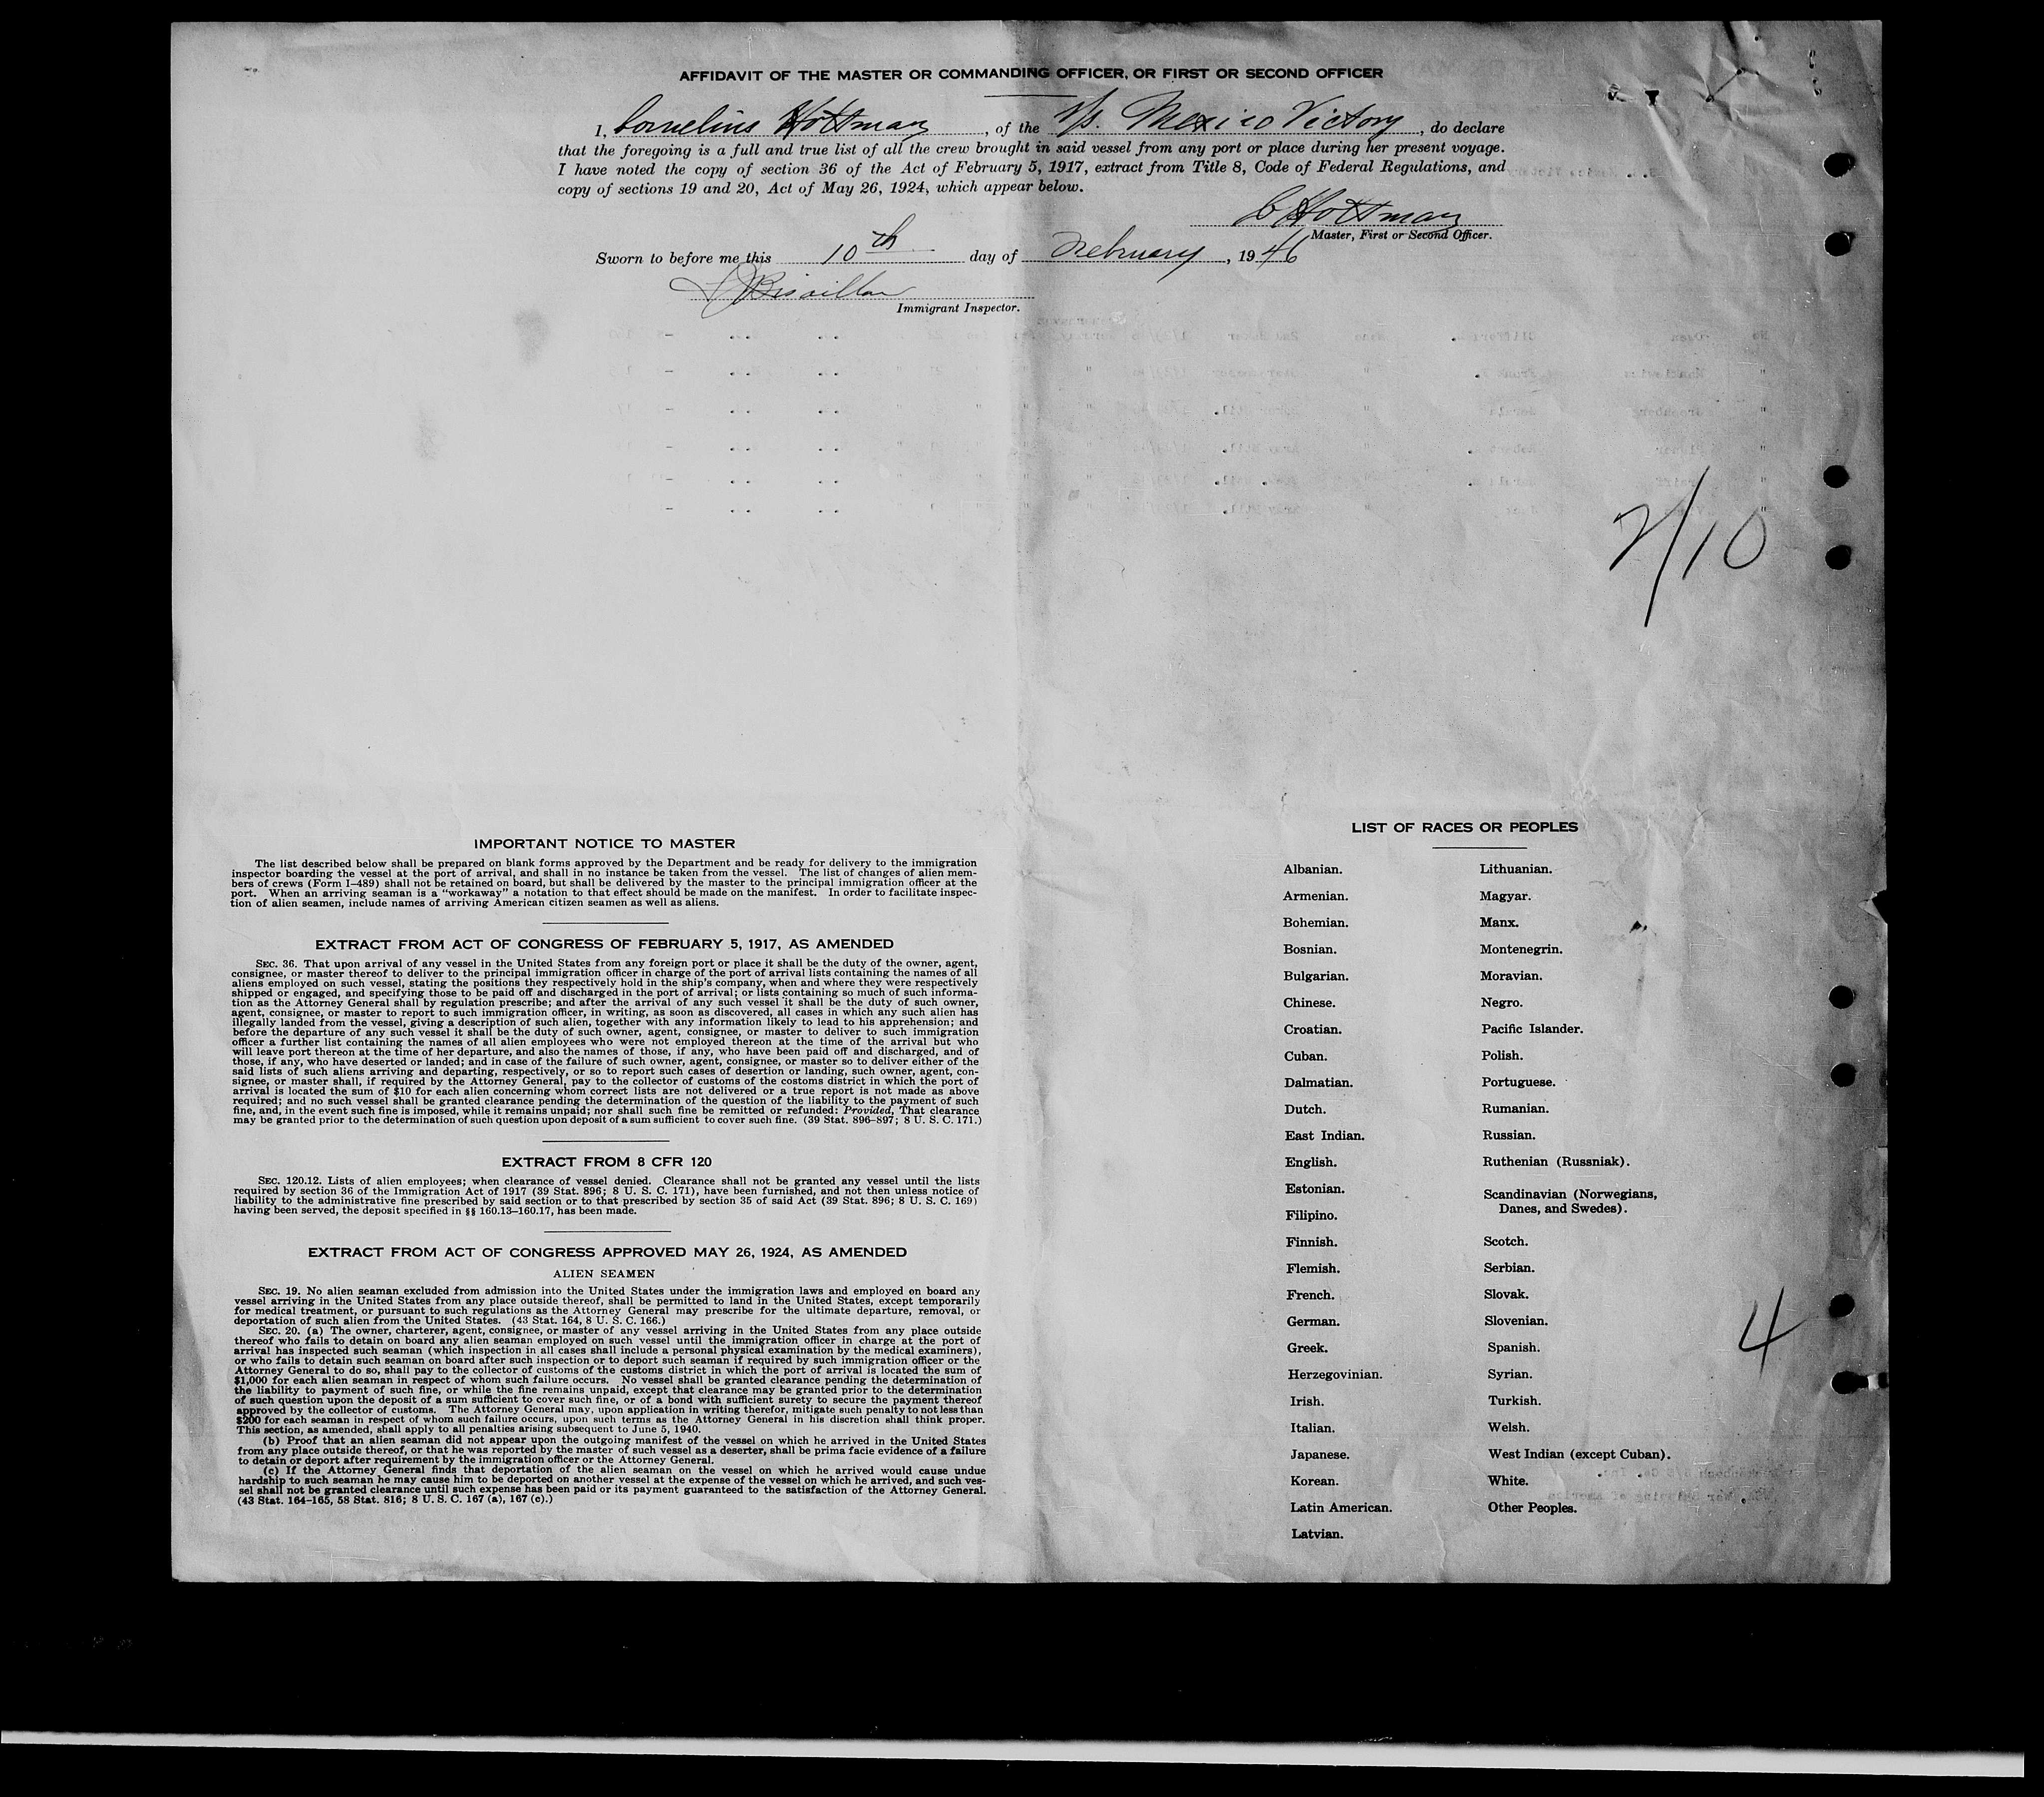 AFFIDAVIT OF THE MASTER OR COMMANDING OFFICER, OR FIRST OR SECOND OFFICER
I, Cornelius Hottman, of the s/s. Mexico Victory, do declare
that the foregoing is a full and true list of all the crew brought in said vessel from any port or place during her present voyage.
I have noted the copy of section 36 of the Act of February 5, 1917, extract from Title 8, Code of Federal Regulations, and
copy of sections 19 and 20, Act of May 26, 1924, which appear below.
C Hottman
Master, First or Second Officer.
Sworn to before me this 10th day of February, 1946
Immigrant Inspector.
2/10
IMPORTANT NOTICE TO MASTER
The list described below shall be prepared on blank forms approved by the Department and be ready for delivery to the immigration
inspector boarding the vessel at the port of arrival, and shall in no instance be taken from the vessel. The list of changes of alien mem-
bers of crews (Form I-489) shall not be retained on board, but shall be delivered by the master to the principal immigration officer at the
port. When an arriving seaman is a "workaway" a notation to that effect should be made on the manifest. In order to facilitate inspec-
tion of alien seamen, include names of arriving American citizen seamen as well as aliens.
EXTRACT FROM ACT OF CONGRESS OF FEBRUARY 5, 1917, AS AMENDED
SEC. 36. That upon arrival of any vessel in the United States from any foreign port or place it shall be the duty of the owner, agent,
consignee, or master thereof to deliver to the principal immigration officer in charge of the port of arrival lists containing the names of all
aliens employed on such vessel, stating the positions they respectively hold in the ship's company, when and where they were respectively
shipped or engaged, and specifying those to be paid off and discharged in the port of arrival; or lists containing so much of such informa-
tion as the Attorney General shall by regulation prescribe; and after the arrival of any such vessel it shall be the duty of such owner,
agent, consignee, or master to report to such immigration officer, in writing, as soon as discovered, all cases in which any such alien has
illegally landed from the vessel, giving a description of such alien, together with any information likely to lead to his apprehension; and
before the departure of any such vessel it shall be the duty of such owner, agent, consignee, or master to deliver to such immigration
officer a further list containing the names of all alien employees who were not employed thereon at the time of the arrival but who
will leave port thereon at the time of her departure, and also the names of those, if any, who have been paid off and discharged, and of
those, if any, who have deserted or landed; and in case of the failure of such owner, agent, consignee, or master so to deliver either of the
said lists of such aliens arriving and departing, respectively, or so to report such cases of desertion or landing, such owner, agent, con-
signee, or master shall, if required by the Attorney General, pay to the collector of customs of the costoms district in which the port of
arrival is located the sum of $10 for each alien concerning whom correct lists are not delivered or a true report is not made as above
required; and no such vessel shall be granted clearance pending the determination of the question of the liability to the payment of such
fine, and, in the event such fine is imposed, while it remains unpaid; nor shall such fine be remitted or refunded: Provided, That clearance
may be granted prior to the determination of such question upon deposit of a sum sufficient to cover such fine. (39 Stat. 896-897; 8 U. S. C. 171.)
EXTRACT FROM 8 CFR 120
SEC. 120.12. Lists of alien employees; when clearance of vessel denied. Clearance shall not be granted any vessel until the lists
required by section 36 of the Immigration Act of 1917 (39 Stat. 896; 8 U. S. C. 171), have been furnished, and not then unless notice of
liability to the administrative fine prescribed by said section or to that prescribed by section 35 of said Act (39 Stat. 896; 8 U. S. C. 169)
having been served, the deposit specified in §§ 160.13-160.17, has been made.
EXTRACT FROM ACT OF CONGRESS APPROVED MAY 26, 1924, AS AMENDED
ALIEN SEAMEN
SEC. 19. No alien seaman excluded from admission into the United States under the immigration laws and employed on board any
vessel arriving in the United States from any place outside thereof, shall be permitted to land in the United States, except temporarily
for medical treatment, or pursuant to such regulations as the Attorney General may prescribe for the ultimate departure, removal, or
deportation of such alien from the United States. (43 Stat. 164, 8 U. S. C. 166.)
SEC. 20. (a) The owner, charterer, agent, consignee, or master of any vessel arriving in the United States from any place outside
thereof who fails to detain on board any alien seaman employed on such vessel until the immigration officer in charge at the port of
arrival has inspected such seaman (which inspection in all cases shall include a personal physical examination by the medical examiners),
or who fails to detain such seaman on board after such inspection or to deport such seaman if required by such immigration officer or the
Attorney General to do so, shall pay to the collector of customs of the customs district in which the port of arrival is located the sum of
$1,000 for each alien seaman in respect of whom such failure occurs. No vessel shall be granted clearance pending the determination of
the liability to payment of such fine, or while the fine remains unpaid, except that clearance may be granted prior to the determination
of such question upon the deposit of a sum sufficient to cover such fine, or of a bond with sufficient surety to secure the payment thereof
approved by the collector of customs. The Attorney General may, upon application in writing therefor, mitigate such penalty to not less than
$200 for each seaman in respect of whom such failure occurs, upon such terms as the Attorney General in his discretion shall think proper.
This section, as amended, shall apply to all penalties arising subsequent to June 5, 1940.
(b) Proof that an alien seaman did not appear upon the outgoing manifest of the vessel on which he arrived in the United States
from any place outside thereof, or that he was reported by the master of such vessel as a deserter, shall be prima facie evidence of a failure
to detain or deport after requirement by the immigration officer or the Attorney General.
(c) If the Attorney General finds that deportation of the alien seaman on the vessel on which he arrived would cause undue
hardship to such seaman he may cause him to be deported on another vessel at the expense of the vessel on which he arrived, and such ves-
sel shall not be granted clearance until such expense has been paid or its payment guaranteed to the satisfaction of the Attorney General.
(43 Stat. 164-165, 58 Stat. 816; 8 U. S. C. 167 (a), 167 (c).)
LIST OF RACES OR PEOPLES
Albanian.
Armenian.
Bohemian.
Bosnian.
Bulgarian.
Chinese.
Croatian.
Cuban.
Dalmatian.
Dutch.
East Indian.
English.
Estonian.
Filipino.
Finnish.
Flemish.
French.
German.
Greek.
Herzegovinian.
Irish.
Italian.
Japanese.
Korean.
Latin American.
Latvian.
Lithuanian.
Magyar.
Manx.
Montenegrin.
Moravian.
Negro.
Pacific Islander.
Polish.
Portuguese.
Rumanian.
Russian.
Ruthenian (Russniak).
Scandinavian (Norwegians,
Danes, and Swedes).
Scotch.
Serbian.
Slovak.
Slovenian.
Spanish.
Syrian.
Turkish.
Welsh.
West Indian (except Cuban).
White.
Other Peoples.
4